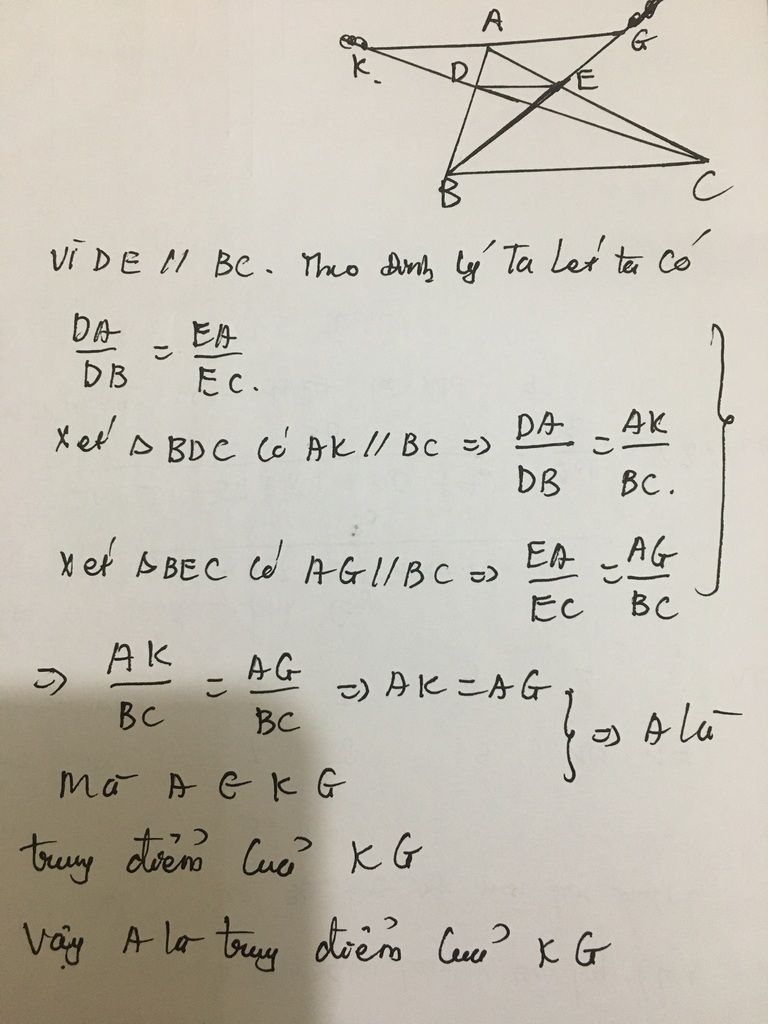 A
G
K.
D
E
B
C
Vì DE // BC. Theo định lý Ta Let ta có
DA/DB = EA/EC.
Xét Δ BDC có AK // BC => DA/DB = AK/BC.
Xét Δ BEC có AG // BC => EA/EC = AG/BC
=> AK/BC = AG/BC => AK = AG
=> A là
Mà A ∈ KG
trung điểm của KG
Vậy A là trung điểm của KG